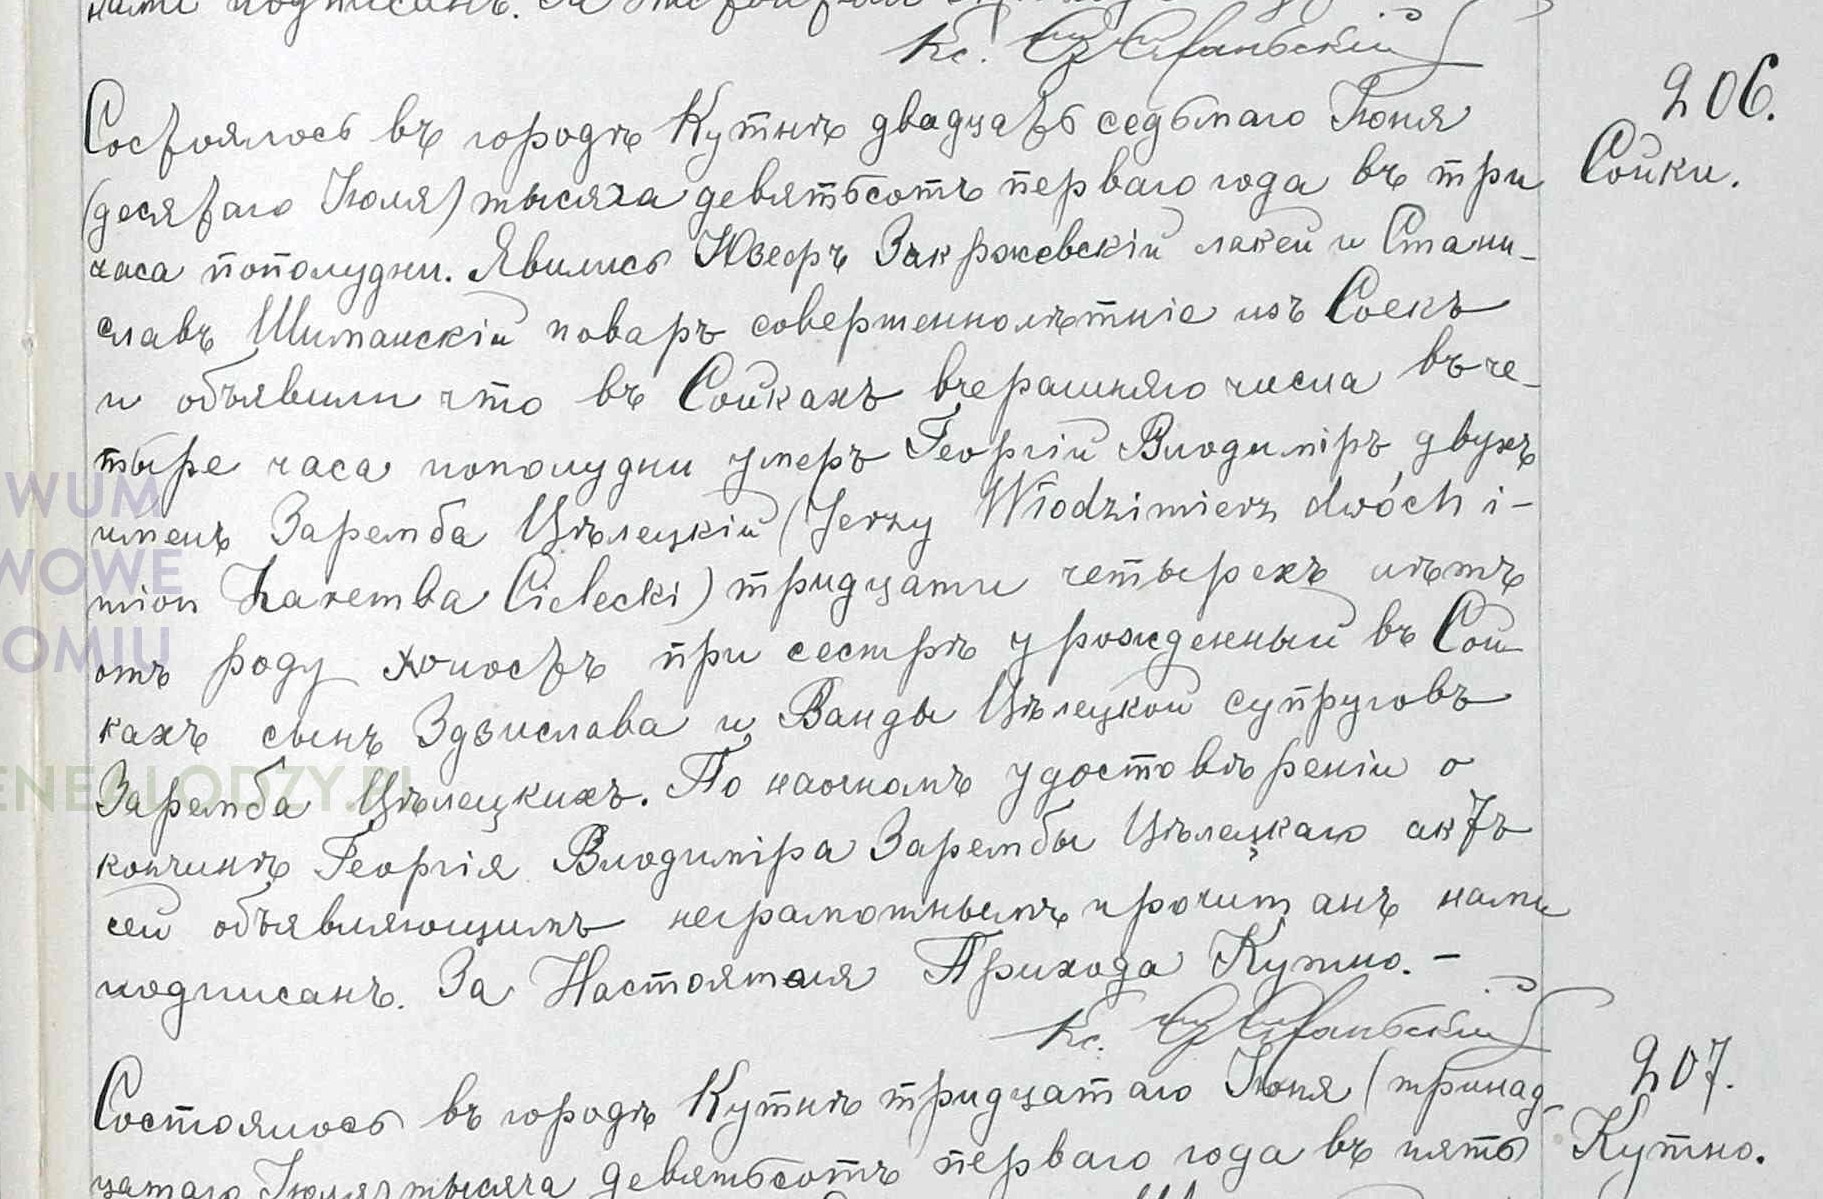 нами подписанъ.
Кс.
206.
Сойки.
Состоялось въ городѣ Кутнѣ двадцать седьмаго Іюня
(десятаго Іюля) тысяча девятьсотъ перваго года въ три
часа пополудни. Явились Юзефъ Закржевскій лакей и Стани-
славъ Шиманскій поваръ совершеннолѣтніе изъ Соекъ
и объявили что въ Сойкахъ вчерашняго числа въ че-
тыре часа пополудни умеръ Георгій Влодиміръ двухъ
именъ Заремба Цѣлецкій (Jerzy Włodzimierz dwóch i-
mion Zaremba Cielecki) тридцати четырехъ лѣтъ
отъ роду холостъ при сестрѣ урожденный въ Сой-
кахъ сынъ Здзислава и Ванды Цѣлецкой супруговъ
Заремба Цѣлецкихъ. По наочномъ удостовѣреніи о
кончинѣ Георгія Влодиміра Зарембы Цѣлецкаго актъ
сей объявляющимъ неграмотнымъ прочитанъ нами
подписанъ. За Настоятеля Прихода Кутно. -
Кс.
207.
Кутно.
Состоялось въ городѣ Кутнѣ тридцатаго Іюня (тринад-
цатаго Іюля) тысяча девятьсотъ перваго года въ пять
WUM
WOWE
OMIU
ENE LODZY.PL